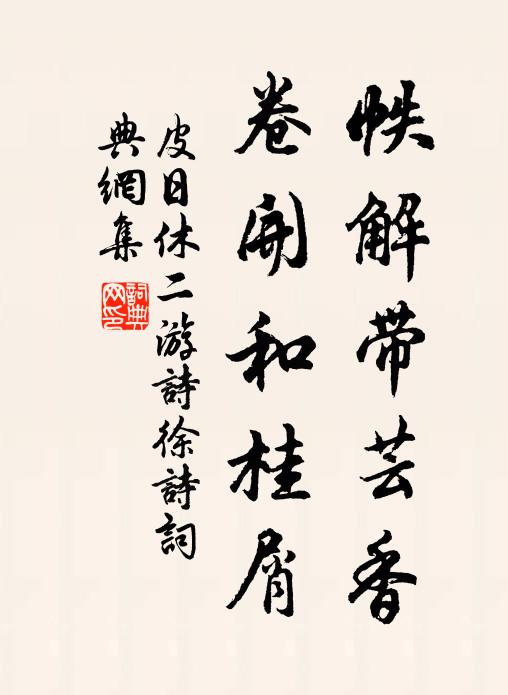 帙解帶芸香
卷開和桂屑
皮日休二游詩徐詩詞
典網集
詞典网印